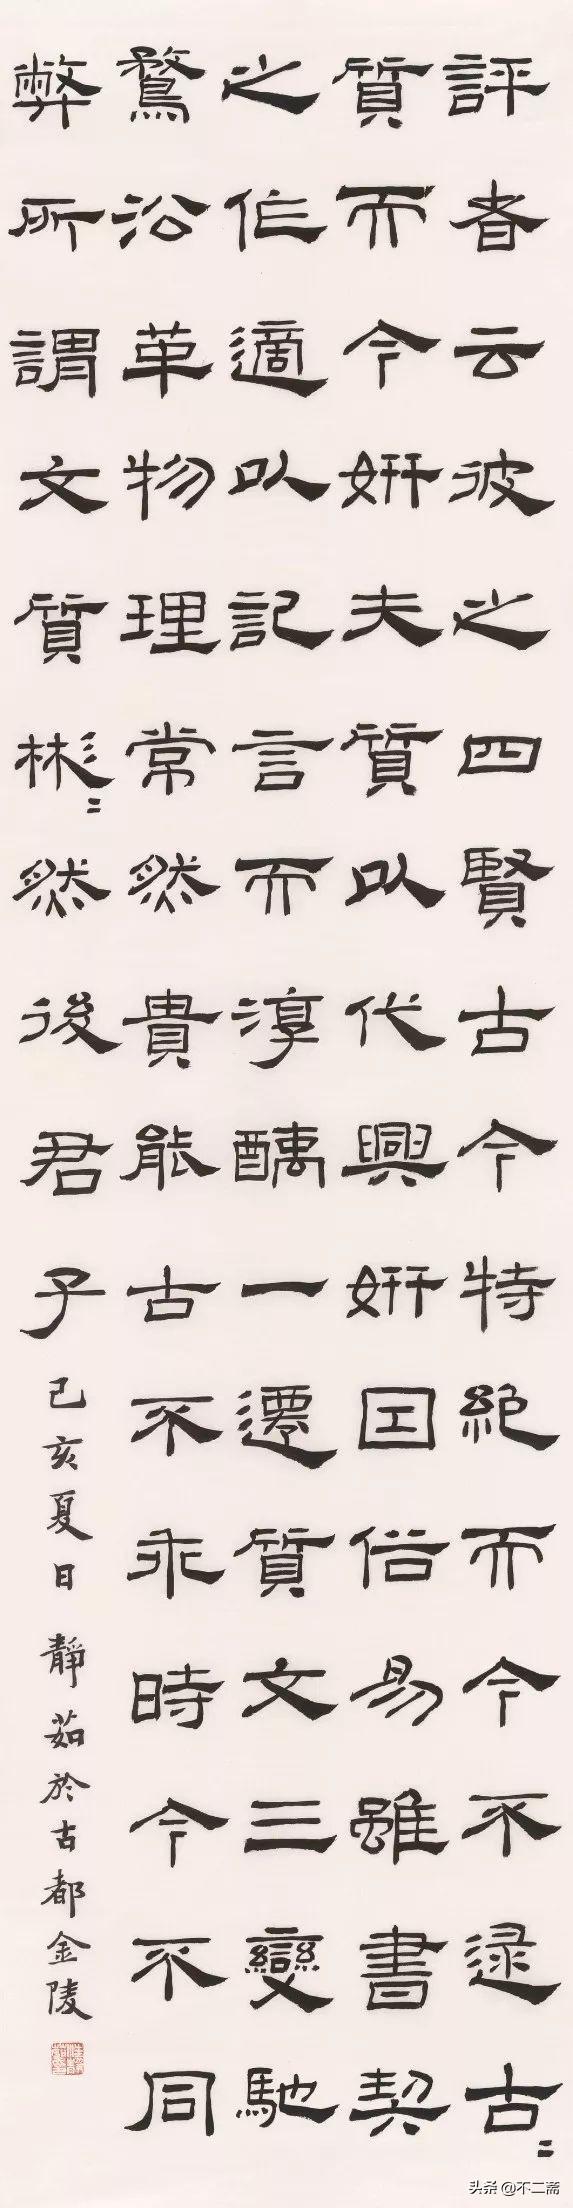 評者云彼之四賢古今特絕而今不逮古〻
質而今妍夫質以代興妍因俗易雖書契
之作適以記言而淳醨一遷質文三變馳
鶩沿革物理常然貴能古不乖時今不同
弊所謂文質彬〻然後君子
己亥夏日 靜茹於古都金陵
头条 @不二斋